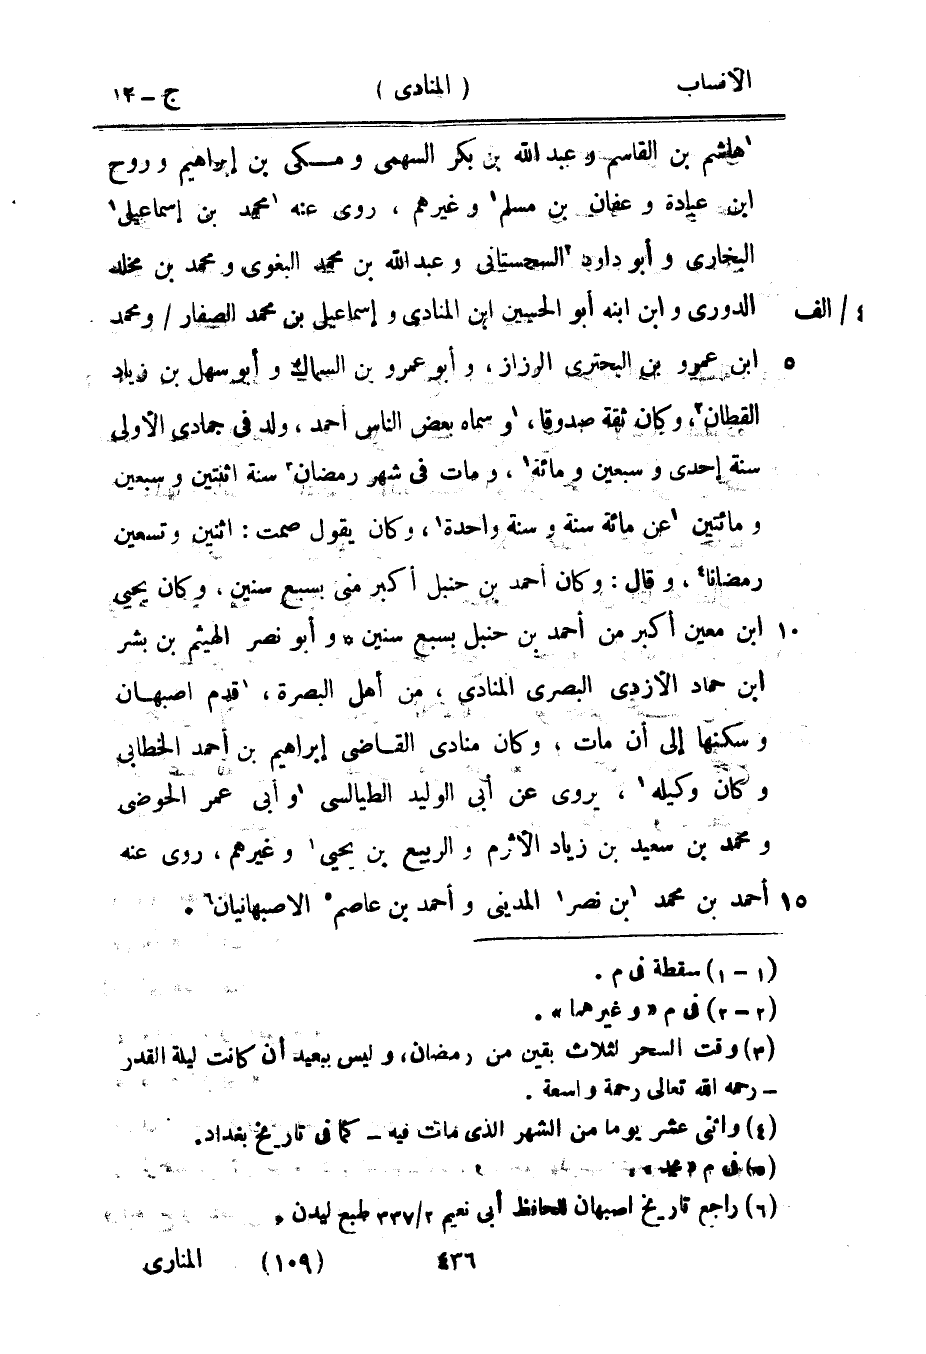 الأنساب ( المنادى ) ج – ١٢
١هاشم بن القاسم و عبد الله بن بكر السهمى و مـكى بن إبراهيم و روح
ابن عبادة و عفان بن مسلم١ و غيرهم ، روى عنه ١محمد بن إسماعيل١
البخارى و أبو داود ٢السجستانى و عبد الله بن محمد البغوى و محمد بن مخلد
٤ / الف الدورى و ابن ابنه أبو الحسين ابن المنادى و إسماعيل بن محمد الصفار / و محمد
٥ ابن عمرو بن البخترى الرزاز ، و أبو عمرو بن السماك و أبو سهل بن زياد
القطان٢، وكان ثقة صدوقا ، ١و سماه بعض الناس أحمد ، ولد فى جمادى الأولى
سنة إحدى و سبعين و مائة١ ، و مات فى شهر رمضان٣ سنة اثنتين و سبعين
و مائتين ١عن مائة سنة و سنة واحدة١ ، وكان يقول صمت : اثنين و تسعين
رمضانا٤ ، و قال : وكان أحمد بن حنبل أكبر منى بسبع سنين ، وكان يحيى
١٠ ابن معين أكبر من أحمد بن حنبل بسبع سنين * و أبو نصر الهيثم بن بشر
ابن حماد الأزدى البصرى المنادى ، من أهل البصرة ، ١قدم اصبهـان
و سكنها إلى أن مات ، وكان منادى القـاضى إبراهيم بن أحمد الخطابى
و كان وكيله١ ، يروى عن أبى الوليد الطيالسى ١و أبى عمر الحوضى
و محمد بن سعيد بن زياد الأثرم و الربيع بن يحيى١ و غيرهم ، روى عنه
١٥ أحمد بن محمد ١بن نصر١ المدينى و أحمد بن عاصم٥ الاصبهانيان٦ .
(١ – ١) سقطة فى م .
(٢ – ٢) فى م « و غيرهما » .
(٣) وقت السحر لثلاث بقين من رمضان، و ليس ببعيد أن كانت ليلة القدر
– رحمه الله تعالى رحمة واسعة .
(٤) واثنى عشر يوما من الشهر الذى مات فيه – كما فى تاريخ بغداد.
(٥) فى م « محمد » .
(٦) راجع تاريخ اصبهان للحافظ أبى نعيم ٢/ ٣٣٧ طبع ليدن .
٤٣٦ (١٠٩) المنارى